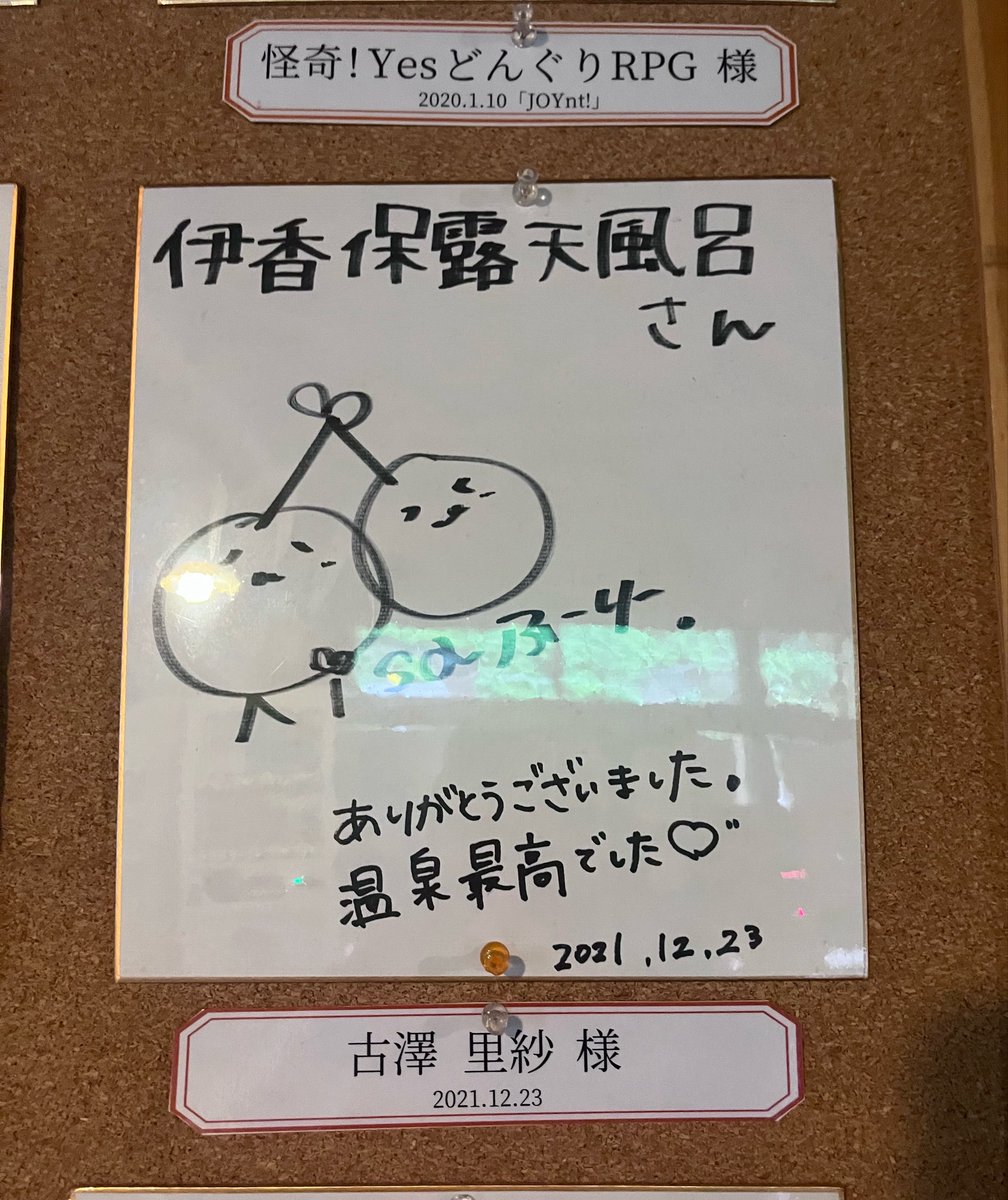 怪奇!YesどんぐりRPG 様
2020.1.10「JOYnt!」
伊香保露天風呂
さん
ありがとうございました。
温泉最高でした♡
2021.12.23
古澤 里紗 様
2021.12.23